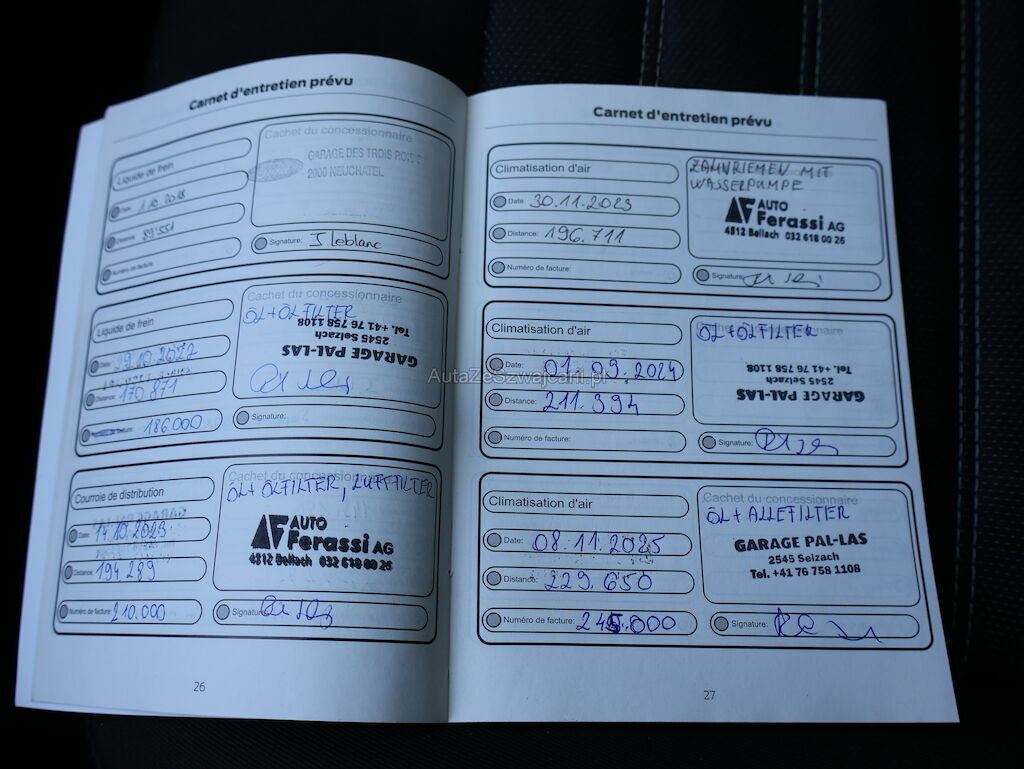 Carnet d'entretien prévu
Liquide de frein
Date: 1.10.2018
Distance: 89.551
Numéro de facture:
Cachet du concessionnaire
GARAGE DES TROIS ROIS
2000 NEUCHATEL
Signature: J leblanc
Liquide de frein
Date: 29.10.2022
Distance: 170 871
Numéro de facture: 186.000
Cachet du concessionnaire
ÖL + ÖLFILTER
GARAGE PAL-LAS
2545 Selzach
Tel. +41 76 758 1108
Signature:
Courroie de distribution
Date: 14.10.2023
Distance: 194 289
Numéro de facture: 210.000
Cachet du concessionnaire
ÖL + ÖLFILTER, LUFTFILTER
AF AUTO
Ferassi AG
4512 Bellach 032 618 00 25
Signature:
26
Carnet d'entretien prévu
Climatisation d'air
Date: 30.11.2023
Distance: 196.711
Numéro de facture:
ZAHNRIEMEN MIT
WASSERPUMPE
AF AUTO
Ferassi AG
4512 Bellach 032 618 00 25
Signature:
Climatisation d'air
Date: 01.09.2024
Distance: 211.394
Numéro de facture:
Cachet du concessionnaire
ÖL + ÖLFILTER
GARAGE PAL-LAS
2545 Selzach
Tel. +41 76 758 1108
Signature:
Climatisation d'air
Date: 08.11.2025
Distance: 229.650
Numéro de facture: 245.000
Cachet du concessionnaire
ÖL + ALLEFILTER
GARAGE PAL-LAS
2545 Selzach
Tel. +41 76 758 1108
Signature:
27
AutaZeSzwajcarii.pl